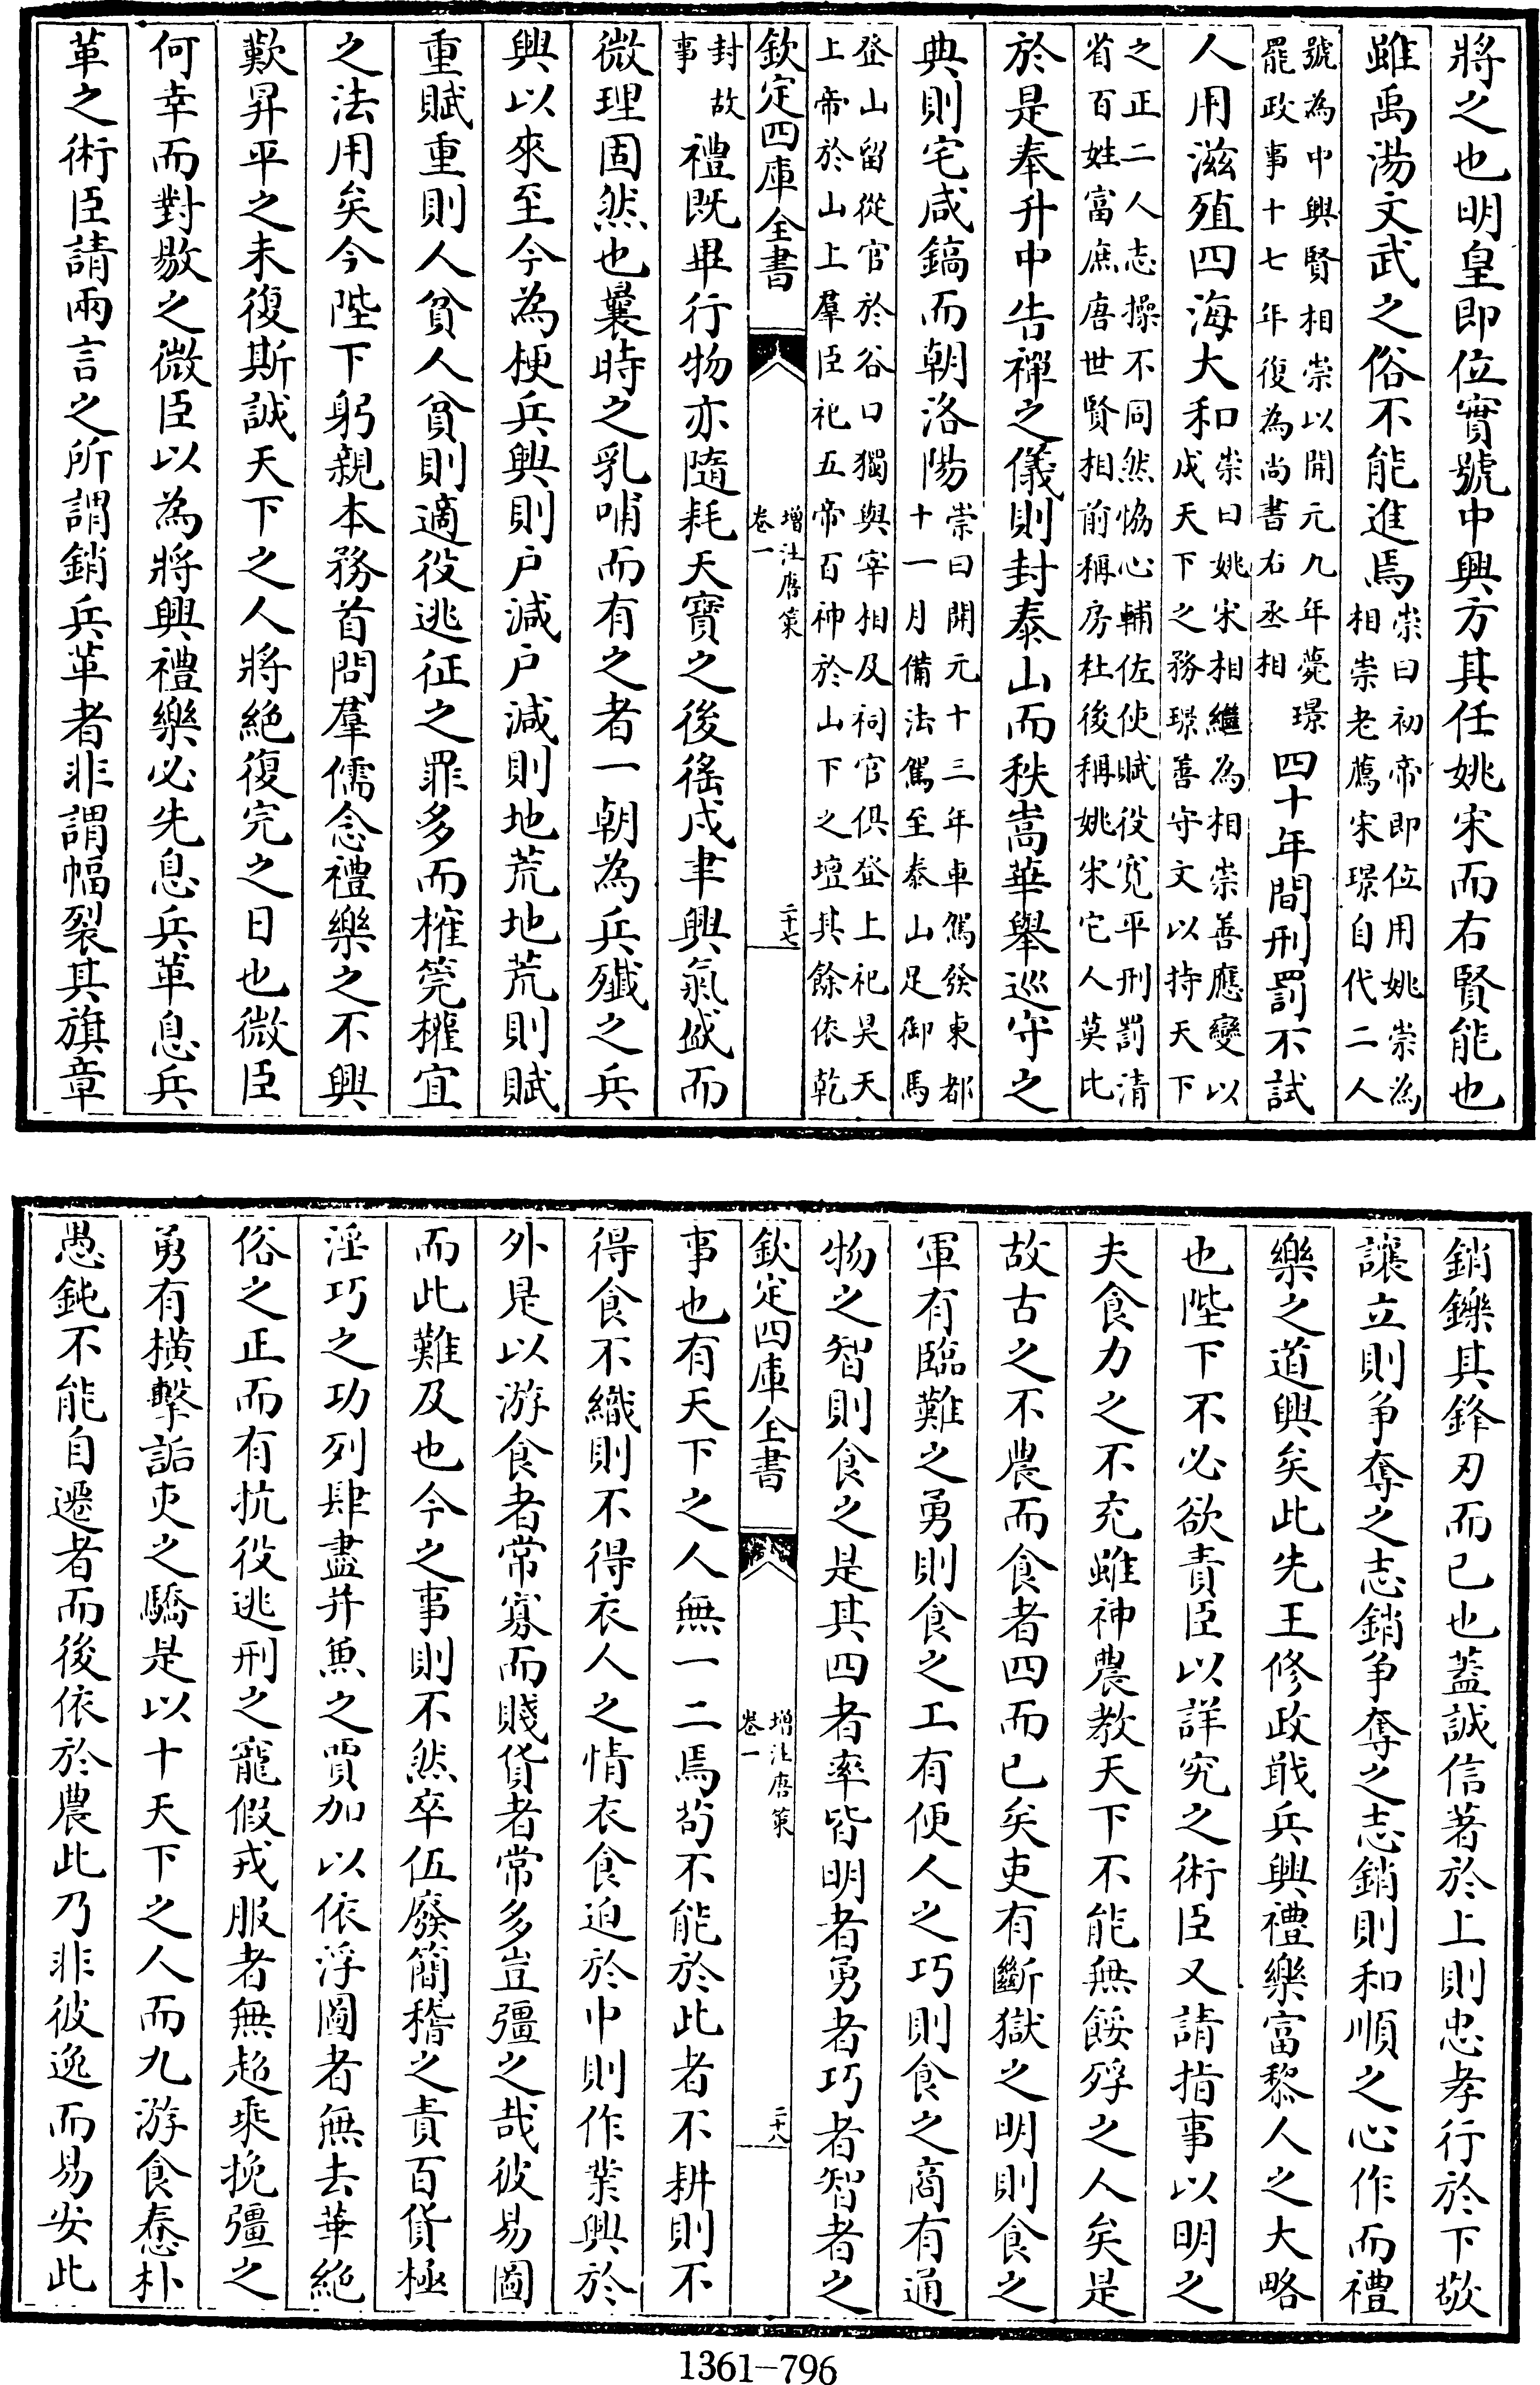 將之也明皇即位實號中興方其任姚宋而右賢能也
雖禹湯文武之俗不能進焉崇曰初帝即位用姚崇為
相崇老薦宋璟自代二人
號為中興賢相崇以開元九年薨璟
罷政事十七年復為尚書右丞相
四十年間刑罰不試
人用滋殖四海大和崇曰姚宋相繼為相崇善應變以
成天下之務璟善守文以持天下
之正二人志操不同然恊心輔佐使賦役寛平刑罰清
省百姓富庶唐世賢相前稱房杜後稱姚宋它人莫比
於是奉升中告禪之儀則封泰山而秩嵩華舉巡守之
典則宅咸鎬而朝洛陽崇曰開元十三年車駕發東都
十一月備法駕至泰山足御馬
登山留從官於谷口獨與宰相及祠官俱登上祀昊天
上帝於山上羣臣祀五帝百神於山下之壇其餘依乾
欽定四庫全書
增注唐策
卷一
二十七
封故
事
禮既畢行物亦隨耗天寶之後徭戍聿興氣盛而
微理固然也曩時之乳哺而有之者一朝為兵殲之兵
興以來至今為梗兵興則户減户減則地荒地荒則賦
重賦重則人貧人貧則適役逃征之罪多而榷筦權宜
之法用矣今陛下躬親本務首問羣儒念禮樂之不興
歎昇平之未復斯誠天下之人將絶復完之日也微臣
何幸而對敭之微臣以為將興禮樂必先息兵革息兵
革之術臣請兩言之所謂銷兵革者非謂幅裂其旗章
銷鑠其鋒刃而已也蓋誠信著於上則忠孝行於下敬
讓立則爭奪之志銷爭奪之志銷則和順之心作而禮
樂之道興矣此先王修政戢兵興禮樂富黎人之大略
也陛下不必欲責臣以詳究之術臣又請指事以明之
夫食力之不充雖神農教天下不能無餒殍之人矣是
故古之不農而食者四而已矣吏有斷獄之明則食之
軍有臨難之勇則食之工有便人之巧則食之商有通
物之智則食之是其四者率皆明者勇者巧者智者之
欽定四庫全書
增注唐策
卷一
二十八
事也有天下之人無一二焉苟不能於此者不耕則不
得食不織則不得衣人之情衣食迫於中則作業興於
外是以游食者常寡而賤貨者常多豈彊之哉彼易圖
而此難及也今之事則不然卒伍廢簡稽之責百貨極
淫巧之功列肆盡并兼之賈加以依浮圖者無去華絶
俗之正而有抗役逃刑之寵假戎服者無超乘挽彊之
勇有橫擊詬吏之驕是以十天下之人而九游食惷朴
愚鈍不能自遷者而後依於農此乃非彼逸而易安此
1361-796